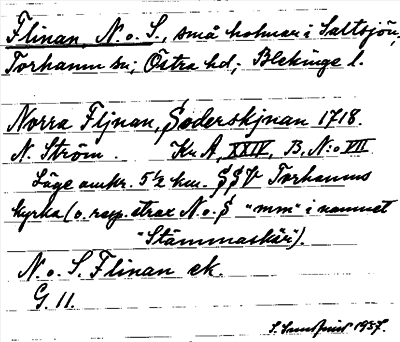 Flinan, N. o. S., små holmar i Saltsjön,
Torhamn sn; Östra hd; Blekinge l.
Norra Fljnan, Söderskjnan 1718.
N. Ström. Kr. A, XXIV, B, N:o VII
Läge omkr. 5½ km. SSV Torhamns
kyrka (o. resp. strax N. o. S "mm" i namnet
"Stämmaskär").
N. o. S. Flinan ek.
G. 11.
1937.